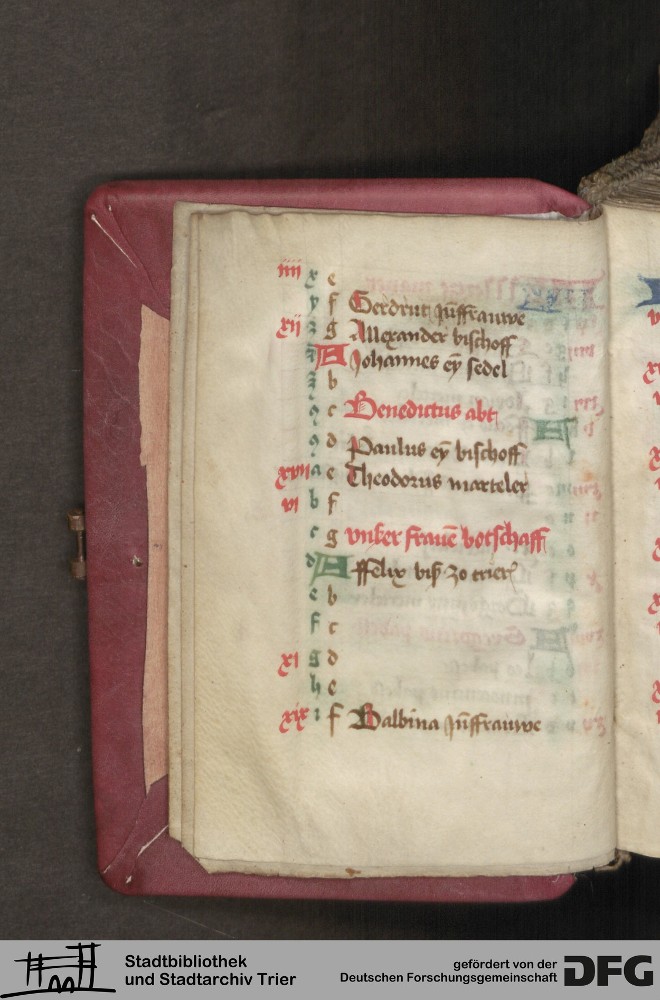 iiii x e
y f Gerdrut jūffrauwe
xij z g Allexander bischoff
A Johannes eȳ sedel
b
c Benedictus abt
9 d Paulus eȳ bischoff
xvii a e Theodorus marteler
vi b f
c g vnser frauē botschaff
d A Felix biß zo trier
e b
f c
xi g d
h e
xix i f Balbina jūffrauwe
Stadtbibliothek
und Stadtarchiv Trier
gefördert von der
Deutschen Forschungsgemeinschaft
DFG